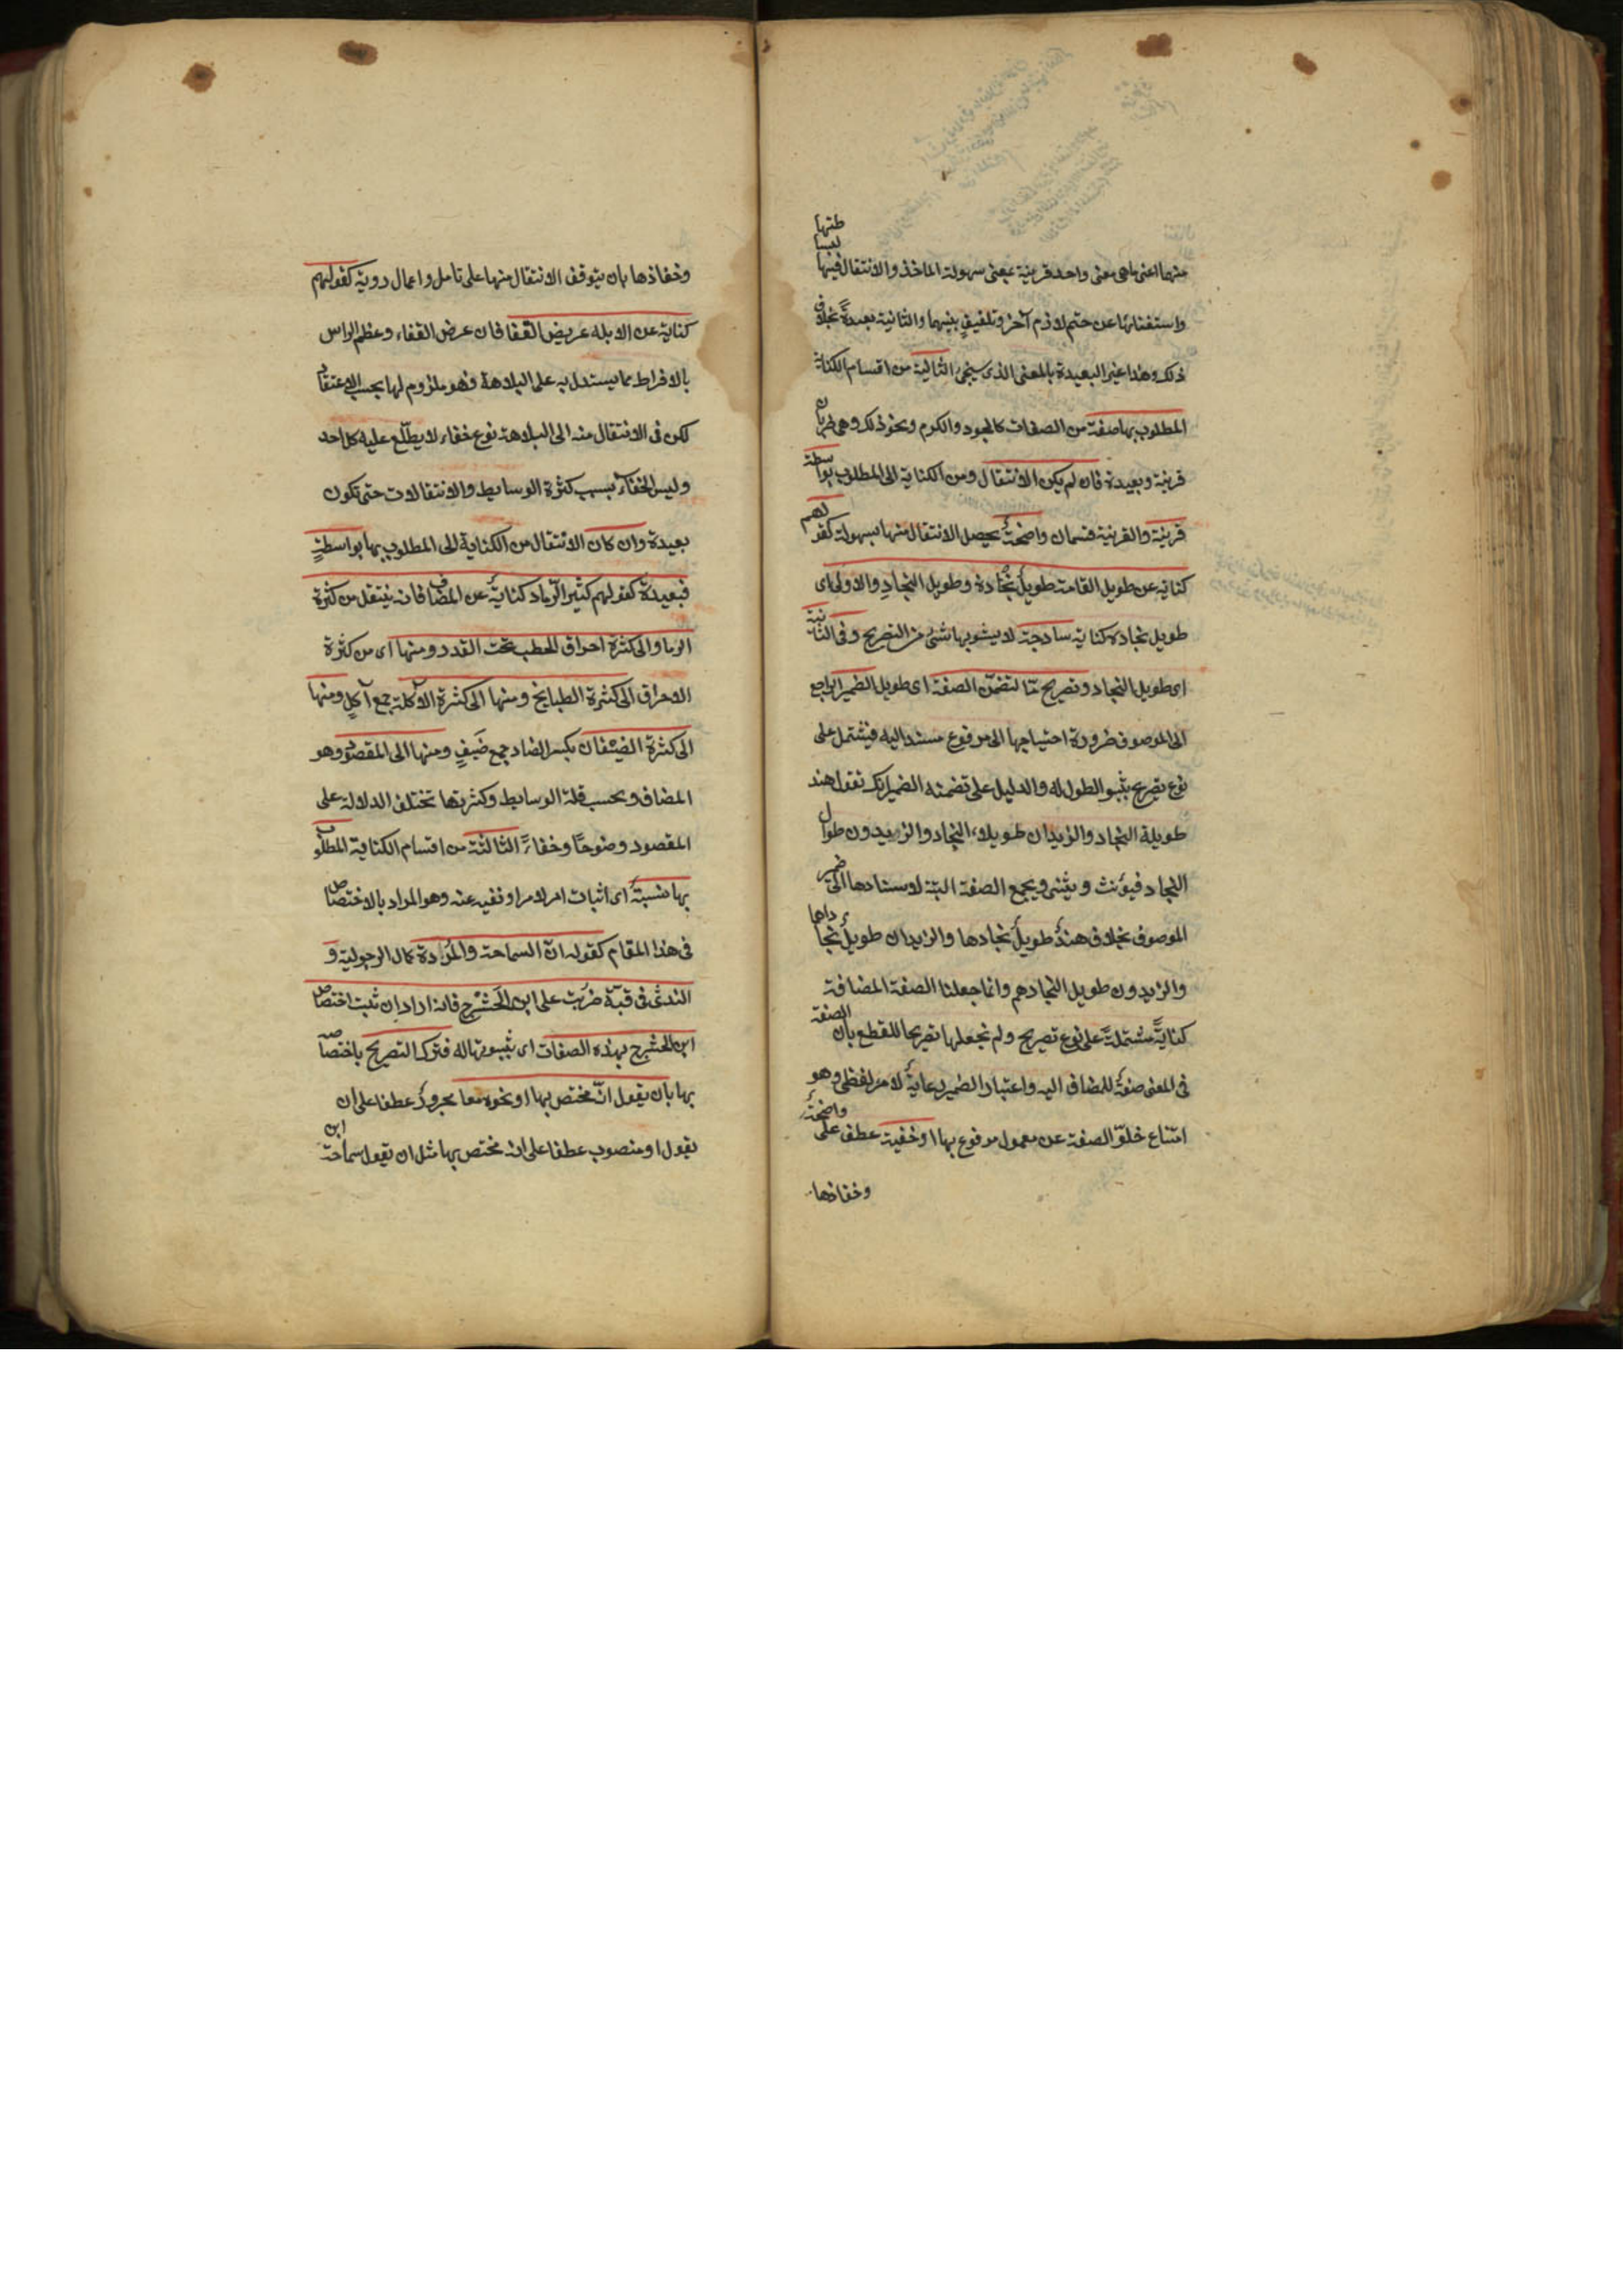 منهما اعنى ما هى معنى واحد قريبة بمعنى سهولة الماخذ والانتقال فيها لبساطتها
واستغنائها عن ضم لازم آخر وتلفيق بينهما والثانية بعيدة بخلاف
ذلك وهذا غير البعيدة بالمعنى الذى سيجئ الثانية من اقسام الكناية
المطلوب بها صفة من الصفات كالجود والكرم ونحو ذلك وهى ضربان
قريبة وبعيدة فان لم يكن الانتقال ومن الكناية الى المطلوب بواسطة
قريبة والقريبة قسمان واضحة يحصل الانتقال منها بسهولة كقولهم
كناية عن طويل القامة طويل نجاده وطويل النجاد والاولى اى
طويل نجاده كناية ساذجة لا يشوبها شئ من التصريح وفى الثانية
اى طويل النجاد تصريح ما لتضمن الصفة اى طويل الضمير الراجع
الى الموصوف ضرورة احتياجها الى مرفوع مسند اليه فيشتمل على
نوع تصريح بثبوت الطول له والدليل على تضمنه الضمير انك تقول هند
طويلة النجاد والزيدان طويلا النجاد والزيدون طوال
النجاد فيؤنث ويثنى ويجمع الصفة البتة لاسنادها الى ضمير
الموصوف بخلاف هند طويل نجادها والزيدان طويل نجاداهما
والزيدون طويل انجادهم وانما جعلنا الصفة المضافة
كناية مشتملة على نوع تصريح ولم نجعلها تصريحا للقطع بان الصفة
فى المعنى صفة للمضاف اليه واعتبار الضمير رعاية لامر لفظى وهو
امتناع خلو الصفة عن معمول مرفوع بها او خفية عطف على واضحة
وخفاؤها
وخفاؤها بان يتوقف الانتقال منها على تامل واعمال روية كقولهم
كناية عن الابله عريض القفا فان عرض القفاء وعظم الراس
بالافراط مما يستدل به على البلاهة وهو ملزوم لها بحسب الاعتقاد
لكن فى الانتقال منه الى البلاهة نوع خفاء لا يطلع عليه كل احد
وليس الخفاء بسبب كثرة الوسايط والانتقالات حتى تكون
بعيدة وان كان الانتقال من الكناية الى المطلوب بها بواسطة
فبعيدة كقولهم كثير الرماد كناية عن المضاف فانه ينتقل من كثرة
الرماد الى كثرة احراق الحطب تحت القدر ومنها اى من كثرة
الاحراق الى كثرة الطبايخ ومنها الى كثرة الاكلة جمع آكل ومنها
الى كثرة الضيفان بكسر الضاد جمع ضيف ومنها الى المقصود وهو
المضاف وبحسب قلة الوسايط وكثرتها تختلف الدلالة على
المقصود وضوحا وخفاء الثالثة من اقسام الكناية المطلوب
بها نسبة اى اثبات امر لامر او نفيه عنه وهو المراد بالاختصاص
فى هذا المقام كقوله ان السماحة والمروة كمال الرجولية و
الندى فى قبة ضربت على ابن الحشرج فانه اراد ان يثبت اختصاص
ابن الحشرج بهذه الصفات اى ثبوتها له فترك التصريح باختصاصه
بها بان يقول انه مختص بها او نحوه معا مجرور عطفا على ان
يقول او منصوب عطفا على انه مختص بها مثل ان يقول سماحة ابن